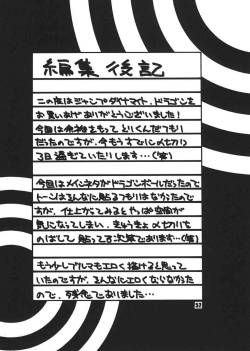 編集後記
この度はジャンプダイナマイト、ドラゴンを
お買いあげありがとうございました!
今回は余裕をもってとりくんだつもり
だったのですが、今もうすでに〆切り
3日過ぎていたりします…(笑)
今回はメインネタがドラゴンボールだったので
トーンはそんなに貼るつもりはなかったので
すが、仕上がってみるとやっぱ空間が
気になってしまい、きゅうきょ〆切りを
のばして貼ってる次第であります…(笑)
もう少しブルマもエロく描けると思って
いたのですが、そんなにエロくならなかった
ので、残念でありました…
37